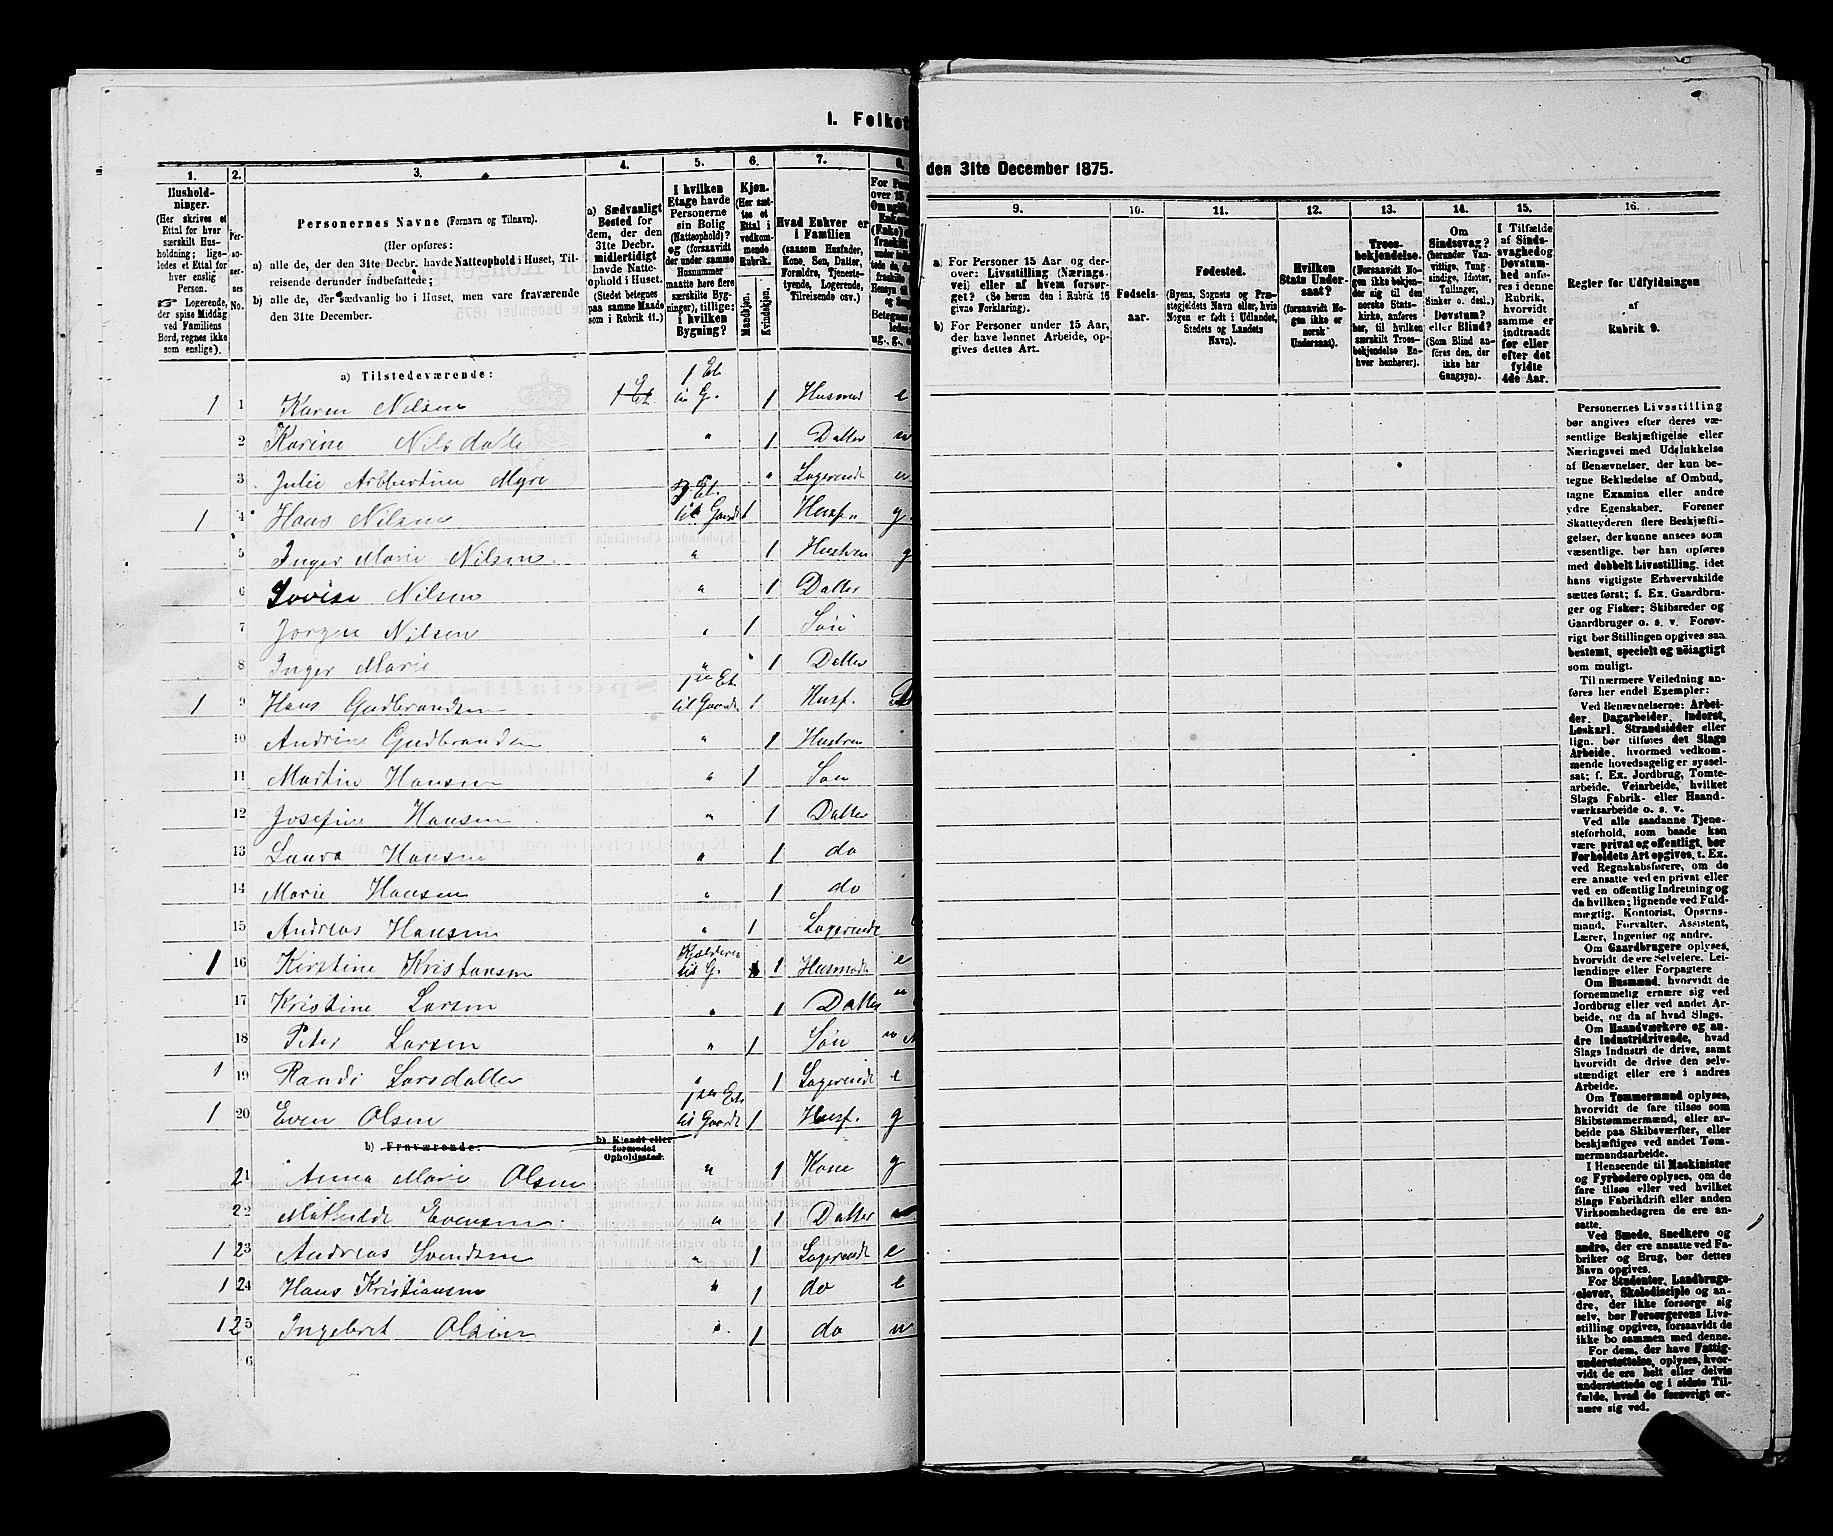 I. Folket
1. 2. 3. 4. 5. 6. 7. 8.
Hushold-
ninger.
(Her skrives et
Ettal for hver
særskilt Hus-
holdning; lige-
ledes et Ettal for
hver enslig
Person.
☞ Logerende,
der spise Middag
ved Familiens
Bord, regnes ikke
som enslige).
Per-
so-
ner-
nes
No.
Personernes Navne (Fornavn og Tilnavn).
(Her opføres:
a) alle de, der den 31te Decbr. havde Natteophold i Huset, Til-
reisende derunder indbefattede;
b) alle de, der sædvanlig bo i Huset, men vare fraværende
den 31te December.
a) Sædvanligt
Bosted for
dem, der den
31te Decbr.
midlertidigt
havde Natte-
ophold i Huset.
(Stedet betegnes
paa samme Maade
som i Rubrik 11.)
I hvilken
Etage havde
Personerne
sin Bolig
(Natteophold)?
og (forsaavidt
der under samme
Husnummer
maatte høre flere
særskilte Byg-
ninger), tillige:
i hvilken
Bygning?
Kjøn.
(Her sæt-
tes et
Ettal i
vedkom-
mende
Rubrik.
Mandkjøn.
Kvindekjøn.
Hvad Enhver er
i Familien
(saasom Husfader,
Kone, Søn, Datter,
Forældre, Tjeneste-
tyende, Logerende,
Tilreisende osv.)
a) Tilstedeværende:
1 1 Karen Nilsen 1 Et. 1 Et. til G. 1 Husmod e
2 Karine Nilsdatte " 1 Datter u
3 Julie Albertine Myre " Logerende u
1 4 Hans Nilsen Et. til Gaarde 1 Husf. g
5 Inger Marie Nilsen " 1 Hustru g
6 Lovise Nilsen " 1 Datter
7 Jørgen Nilsen " 1 Søn
8 Inger Marie " 1 Datter
1 9 Hans Gudbrandsen 1ste Et. til Gaarde 1 Husf.
10 Andrine Gudbrandsen " 1 Hustru
11 Martin Hansen " 1 Søn
12 Josefine Hansen " 1 Datter
13 Laura Hansen " 1 do
14 Marie Hansen " 1 do
15 Andreas Hansen " 1 Logerende
1 16 Kirstine Kristansen Kjælderen til G. 1 Husmode e
17 Kristine Larsen " 1 Datter u
18 Peter Larsen " 1 Søn u
1 19 Randi Larsdatter " 1 Logerende e
1 20 Even Olsen 1ste Et. til Gaarde 1 Husf. g
b) Fraværende: b) Kjendt eller
formodet
Opholdssted.
21 Anna Marie Olsen " 1 Kone g
22 Mathilde Evensen " 1 Datter
1 23 Andreas Svendsen " 1 Logerende e
1 24 Hans Kristiansen " 1 do e
1 25 Ingebret Olsen " 1 do u
6
den 31te December 1875.
9. 10. 11. 12. 13. 14. 15. 16.
a) For Personer 15 Aar og der-
over: Livsstilling (Nærings-
vei) eller af hvem forsør-
get? (Se herom den i Rubrik 16
givne Forklaring).
b) For Personer under 15 Aar,
der have lønnet Arbeide, op-
gives dettes Art.
Fødsels-
aar.
Fødested.
(Byens, Sognets og Præ-
stegjeldets Navn eller, hvis
Nogen er født i Udlandet,
Stedets og Landets
Navn).
Hvilken
Stats Under-
saat?
(forsaavidt No-
gen ikke er
norsk
Undersaat).
Troes-
bekjendelse.
(Forsaavidt No-
gen ikke bekjen-
der sig til den
norske Stats-
kirke, anføres
her, til hvilken
særskilt Troes-
bekjendelse En-
hver henhører).
Om
Sindssvag?
(herunder Van-
vittige, Tung-
sindige, Idioter,
Tullinger,
Sinker o. desl.)
Døvstum?
eller Blind?
(Som Blind an-
føres den, der
ikke har
Gangsyn).
I Tilfælde
af Sinds-
svaghed og
Døvstum-
hed anfø-
res i denne
Rubrik,
hvorvidt
samme er
indtraadt
før eller
efter det
fyldte
4de Aar.
Regler for Udfyldningen
af
Rubrik 9.
Personernes Livsstilling
bør angives efter deres væ-
sentlige Beskjæftigelse eller
Næringsvei med Udelukkelse
af Benævnelser, der kun be-
tegne Beklædelse af Ombud,
tagne Examina eller andre
ydre Egenskaber. Forener
Skatteyderen flere Beskjæfti-
gelser, der kunne ansees som
væsentlige, bør han opføres
med dobbelt Livsstilling, idet
hans vigtigste Erhvervskilde
sættes først; f. Ex. Gaardbru-
ger og Fisker; Skibsreder og
Gaardbruger o. s. v. Forøv-
rigt bør Stillingen opgives saa
bestemt, specielt og nøiagtigt
som muligt.
Til nærmere Veiledning an-
føres her endel Exempler:
Ved Benævnelserne: Arbei-
der, Dagarbeider, Inderst,
Løskarl, Strandsidder eller
lign. bør tilføres det Slags
Arbeide, hvormed vedkom-
mende hovedsagelig er syssel-
sat; f. Ex. Jordbrug, Tomte-
arbeide, Veiarbeide, hvilket
Slags Fabrik- eller Haand-
værksarbeide o. s. v.
Ved alle saadanne Tjene-
steforhold, som baade kan
være privat og offentligt, bør
Forholdets Art opgives, t. Ex.
ved Regnskabsførere, om de
ere ansatte ved en privat eller
ved en offentlig Indretning og
da hvilken; lignende ved Fuld-
mægtig, Kontorist, Opsyns-
mand, Forvalter, Assistent,
Lærer, Ingeniør og andre.
Om Gaardbrugere oplyses,
hvorvidt de ere Selveiere, Lei-
lændinge eller Forpagtere
Om Husmænd, hvorvidt de
fornemmelig ernære sig ved
Jordbrug eller ved andet Ar-
beide, og da af hvad Slags.
Om Haandværkere og an-
dre Industridrivende, hvad
Slags Industri de drive, samt
hvorvidt de drive den selv-
stændigt eller ere i andres
Arbeide.
Om Tømmermænd oplyses,
hvorvidt de fare tilsøs som
Skibstømmermænd, eller ar-
beide paa Skibsværfter, eller
beskjæftiges ved andet Tøm-
mermandsarbeide.
I Henseende til Maskinister
og Fyrbødere oplyses, om de
fare tilsøs eller ved hvilket
Slags Fabrikdrift eller anden
Virksomhedsgren de ere an-
satte.
Ved Smede, Snedkere og
andre, der ere ansatte ved Fa-
briker og Brug, bør dettes
Navn opgives.
For Studenter, Landbrugs-
elever, Skoledisciple og an-
dre, der ikke forsørge sig
selv, bør Forsørgerens Livs-
stilling opgives, forsaavidt de
ikke bo sammen med denne.
For dem, der have Fattig-
understøttelse, oplyses, hvor-
vidt de ere helt eller delvis
understøttede og i sidste Til-
fælde, hvad de forøvrigt er-
nære sig ved.